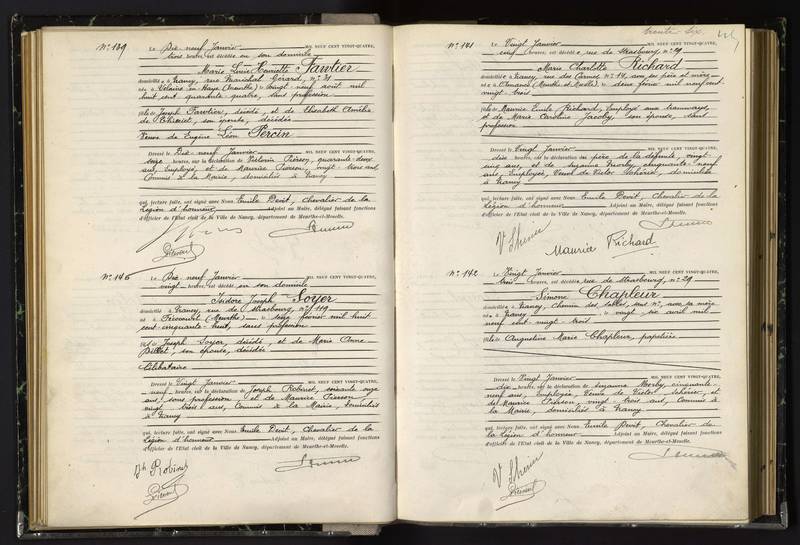 N° 139
Le Dix neuf Janvier MIL NEUF CENT VINGT-QUATRE,
trois heures, est décédée en son domicile
Marie Louise Henriette Fawtier
domiciliée à Nancy, rue Maréchal Gérard, n° 31
née à Velaine en Haye (Meurthe) le vingt neuf août mil
huit cent quarante quatre, sans profession
fille de Joseph Fawtier, décédé, et de Elisabeth Amélie
de Thiriet, son épouse, décédée
Veuve de Eugène Léon Percin
Dressé le Dix neuf Janvier MIL NEUF CENT VINGT-QUATRE,
seize heures, sur la déclaration de quarante deux
ans, Employé, et de Maurice Pierson, vingt trois ans,
Commis à la Mairie, domiciliés à Nancy
qui, lecture faite, ont signé avec Nous Emile Devit, Chevalier de la
Légion d'honneur Adjoint au Maire, délégué faisant fonctions
d'officier de l'Etat civil de la Ville de Nancy, département de Meurthe-et-Moselle.
N° 140
Le Dix neuf Janvier MIL NEUF CENT VINGT-QUATRE,
vingt heures, est décédé en son domicile
Isidore Joseph Soyer
domicilié à Nancy, rue de Strasbourg, n° 119
né à (Meurthe) le seize février mil huit
cent cinquante huit, sans profession
fils de Joseph Soyer, décédé, et de Marie Anne
son épouse, décédée
Célibataire
Dressé le Vingt Janvier MIL NEUF CENT VINGT-QUATRE,
neuf heures, sur la déclaration de Joseph Robinet, soixante onze
ans, sans profession et de Maurice Pierson
vingt trois ans, Commis à la Mairie, domiciliés
à Nancy
qui, lecture faite, ont signé avec Nous Emile Devit, Chevalier de la
Légion d'honneur Adjoint au Maire, délégué faisant fonctions
d'officier de l'Etat civil de la Ville de Nancy, département de Meurthe-et-Moselle.
Jh Robinet
trente six
N° 141
Le Vingt Janvier MIL NEUF CENT VINGT-QUATRE,
cinq heures, est décédée rue de Strasbourg, n° 29
Marie Charlotte Richard
domiciliée à Nancy, rue des Carmes n° 14, avec ses père et mère
née à (Meurthe et Moselle) le deux février mil neuf cent
vingt trois
fille de Maurice Emile Richard, Employé aux tramways,
et de Marie Caroline Jacoby, son épouse, sans
profession
Dressé le Vingt Janvier MIL NEUF CENT VINGT-QUATRE,
dix heures, sur la déclaration du père de la défunte, vingt-
cinq ans, et de Suzanne Morby, cinquante neuf
ans, Employée, Veuve de Victor Schérer, domiciliés
à Nancy
qui, lecture faite, ont signé avec Nous Emile Devit, Chevalier de la
Légion d'honneur Adjoint au Maire, délégué faisant fonctions
d'officier de l'Etat civil de la Ville de Nancy, département de Meurthe-et-Moselle.
Maurice Richard
N° 142
Le Vingt Janvier MIL NEUF CENT VINGT-QUATRE,
trois heures, est décédée rue de Strasbourg, n° 29
Simone Chapleur
domiciliée à Nancy, chemin des Sables, avec sa mère
née à Nancy le vingt six avril mil
neuf cent vingt trois
fille de Augustine Marie Chapleur, papetière
Dressé le Vingt Janvier MIL NEUF CENT VINGT-QUATRE,
dix heures, sur la déclaration de Suzanne Morby, cinquante-
neuf ans, Employée, Veuve de Victor Schérer, et
de Maurice Pierson, vingt trois ans, Commis à
la Mairie, domiciliés à Nancy
qui, lecture faite, ont signé avec Nous Emile Devit, Chevalier de
la Légion d'honneur Adjoint au Maire, délégué faisant fonctions
d'officier de l'Etat civil de la Ville de Nancy, département de Meurthe-et-Moselle.